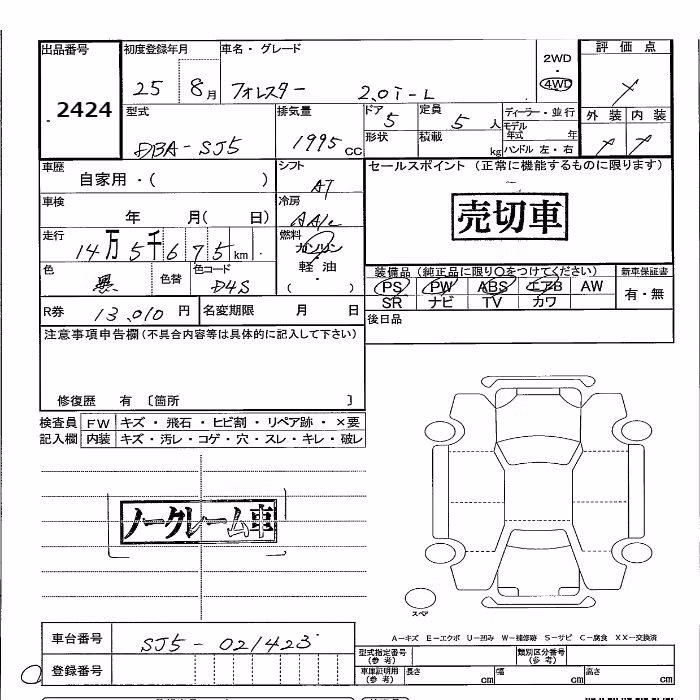 出品番号
2424
初度登録年月
25 8月
車名・グレード
フォレスター 2.0i-L
2WD
4WD
評価点
外装 内装
型式
DBA-SJ5
排気量
1995cc
ドア
5
形状
定員
5人
積載
kg
ディーラー・並行
モデル年式 年
ハンドル 左・右
車歴
自家用・( )
シフト
AT
セールスポイント (正常に機能するものに限ります)
売切車
車検
年 月( 日)
冷房
AAC
走行
14万5千675km
燃料
ガソリン
・
軽油
( ・ )
色
黒
色替
色コード
D4S
装備品 (純正品に限り○をつけてください)
PS PW ABS エアB AW
SR ナビ TV カワ
新車保証書
有・無
R券
13,010円
名変期限 月 日
後日品
注意事項申告欄(不具合内容等は具体的に記入して下さい)
修復歴 有 〔箇所 〕
検査員
記入欄
FW キズ・飛石・ヒビ割・リペア跡・×要
内装 キズ・汚レ・コゲ・穴・スレ・キレ・破レ
ノークレーム車
スペア
A-キズ E-エクボ U-凹み W-補修跡 S-サビ C-腐食 XX-交換済
車台番号
SJ5-021423
登録番号
型式指定番号
(参考)
類別区分番号
(参考)
車庫証明用
(参考)
長さ cm
幅 cm
高さ cm